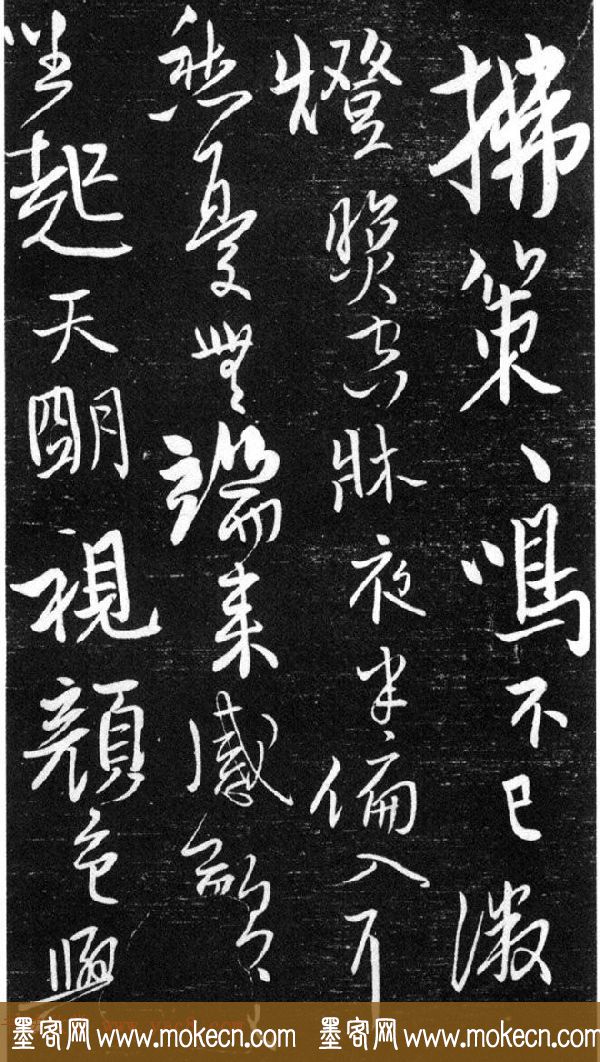 拂策、鳴不已微
燈照空牀夜半偏入耳
愁憂無端来感歎
坐起天朙視顏色與
墨客网 www.mokecn.com 墨客网 www.mokecn.com